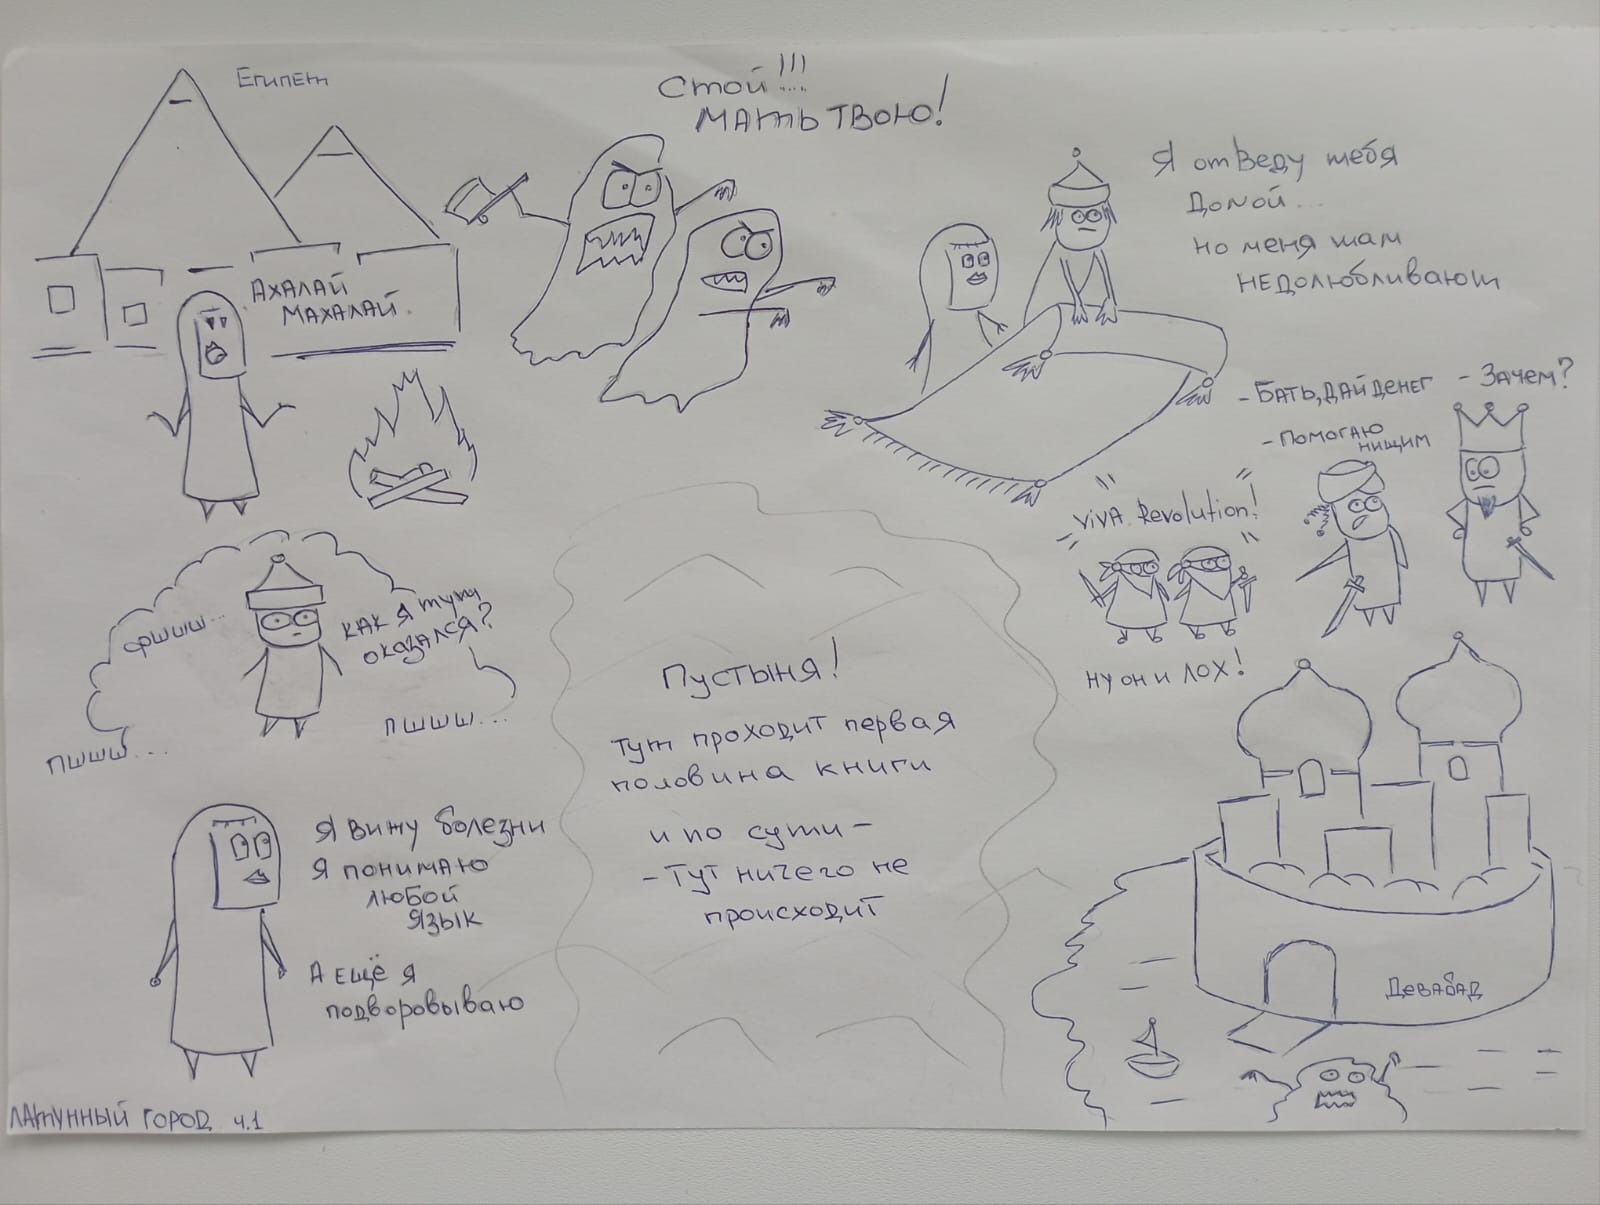 Египет
Стой!!!
Мать твою!
Ахалай
Махалай.
Я отведу тебя
домой...
но меня там
недолюбливают
- Бать, дай денег
- Зачем?
- Помогаю
нищим
Viva Revolution!
ну он и лох!
фшшш...
как я тут
оказался?
пшшш...
пшшш...
Пустыня!
Тут проходит первая
половина книги
и по сути -
- Тут ничего не
происходит
Я вижу болезни
Я понимаю
любой
язык
А ещё я
подворовываю
Девабад
Латунный город ч.1